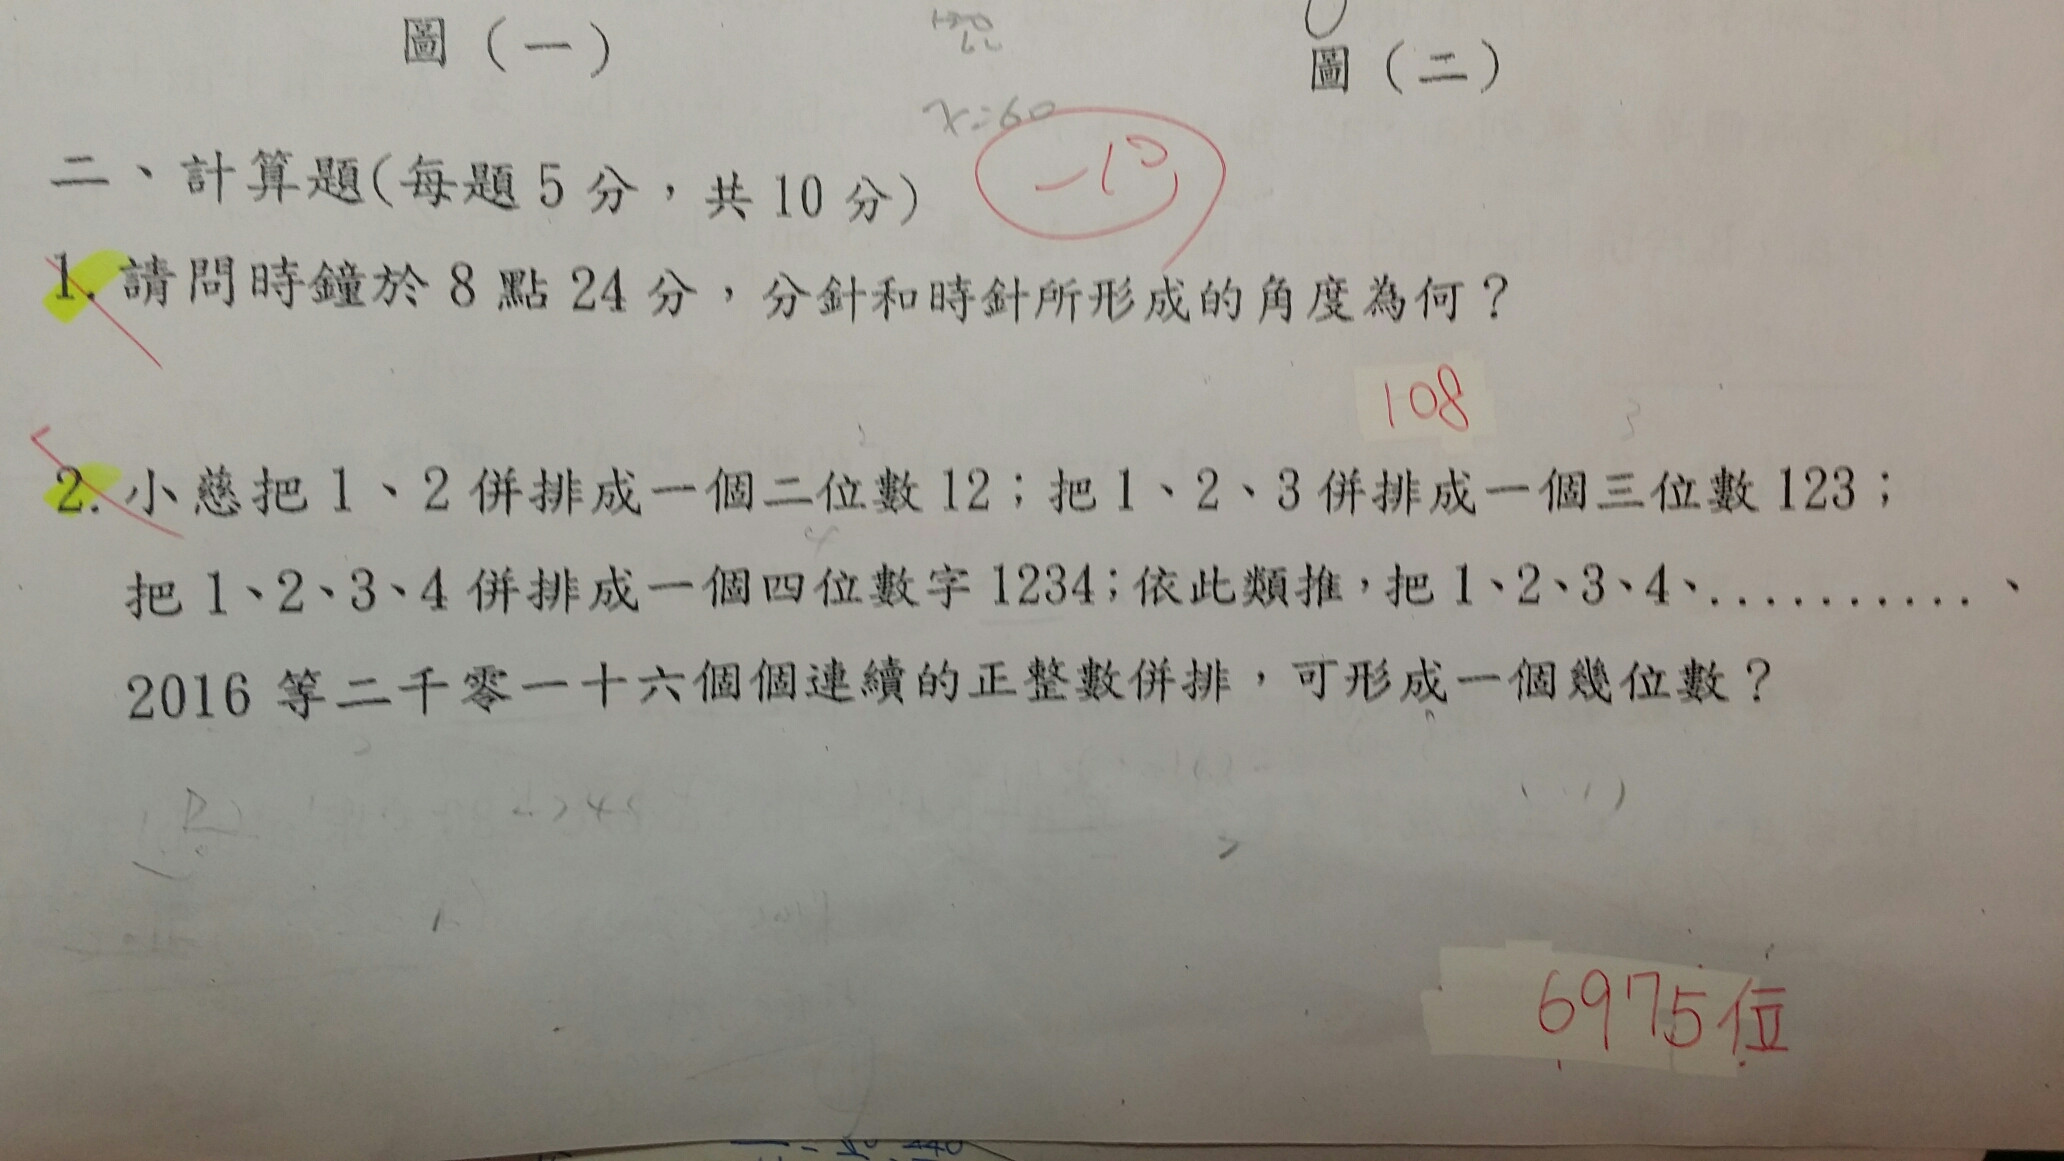 圖（一）
圖（二）
x=60
二、計算題(每題5分，共10分)
-10
1. 請問時鐘於8點24分，分針和時針所形成的角度為何？
108
2. 小慈把1、2併排成一個二位數12；把1、2、3併排成一個三位數123；
把1、2、3、4併排成一個四位數字1234；依此類推，把1、2、3、4、...........、
2016等二千零一十六個個連續的正整數併排，可形成一個幾位數？
6975位